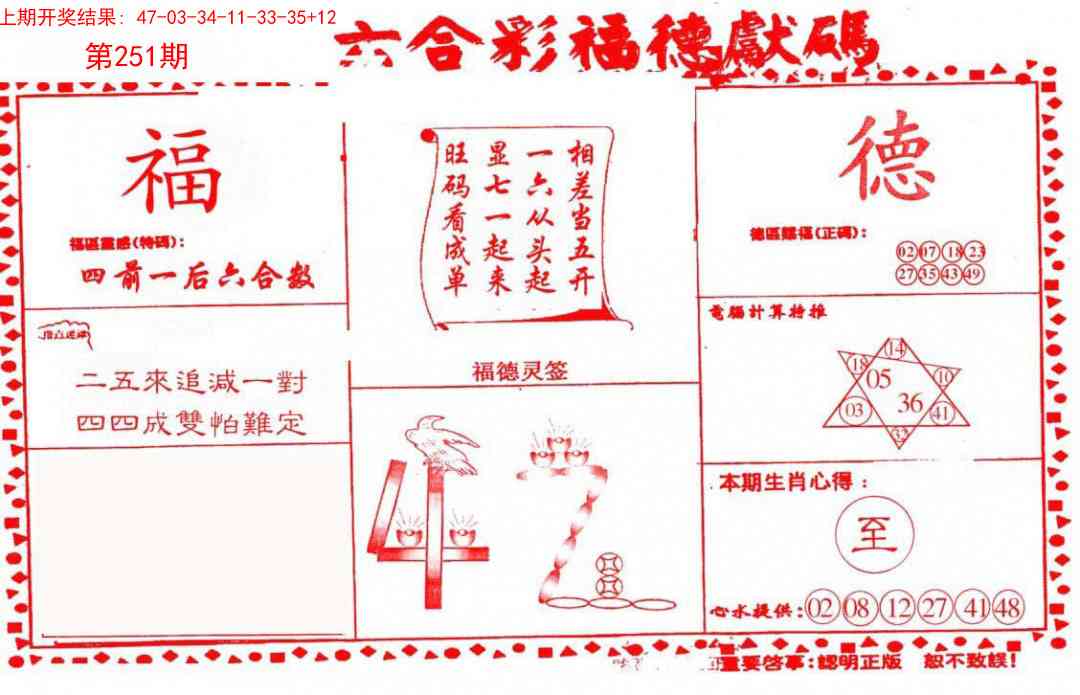 上期开奖结果：47-03-34-11-33-35+12
第251期
六合彩福德獻碼
福
福區靈感(特碼)：
四前一后六合数
二五來追减一對
四四成雙怕難定
相差当五开
一六从头起
显七一起来
旺码看成单
福德灵签
德
(正碼)：
02 07 18 23
27 35 43 49
電腦計算特推
14
18 05 10
03 36 41
32
本期生肖心得：
至
心水提供：02 08 12 27 41 48
重要啓事：認明正版 恕不致誤！